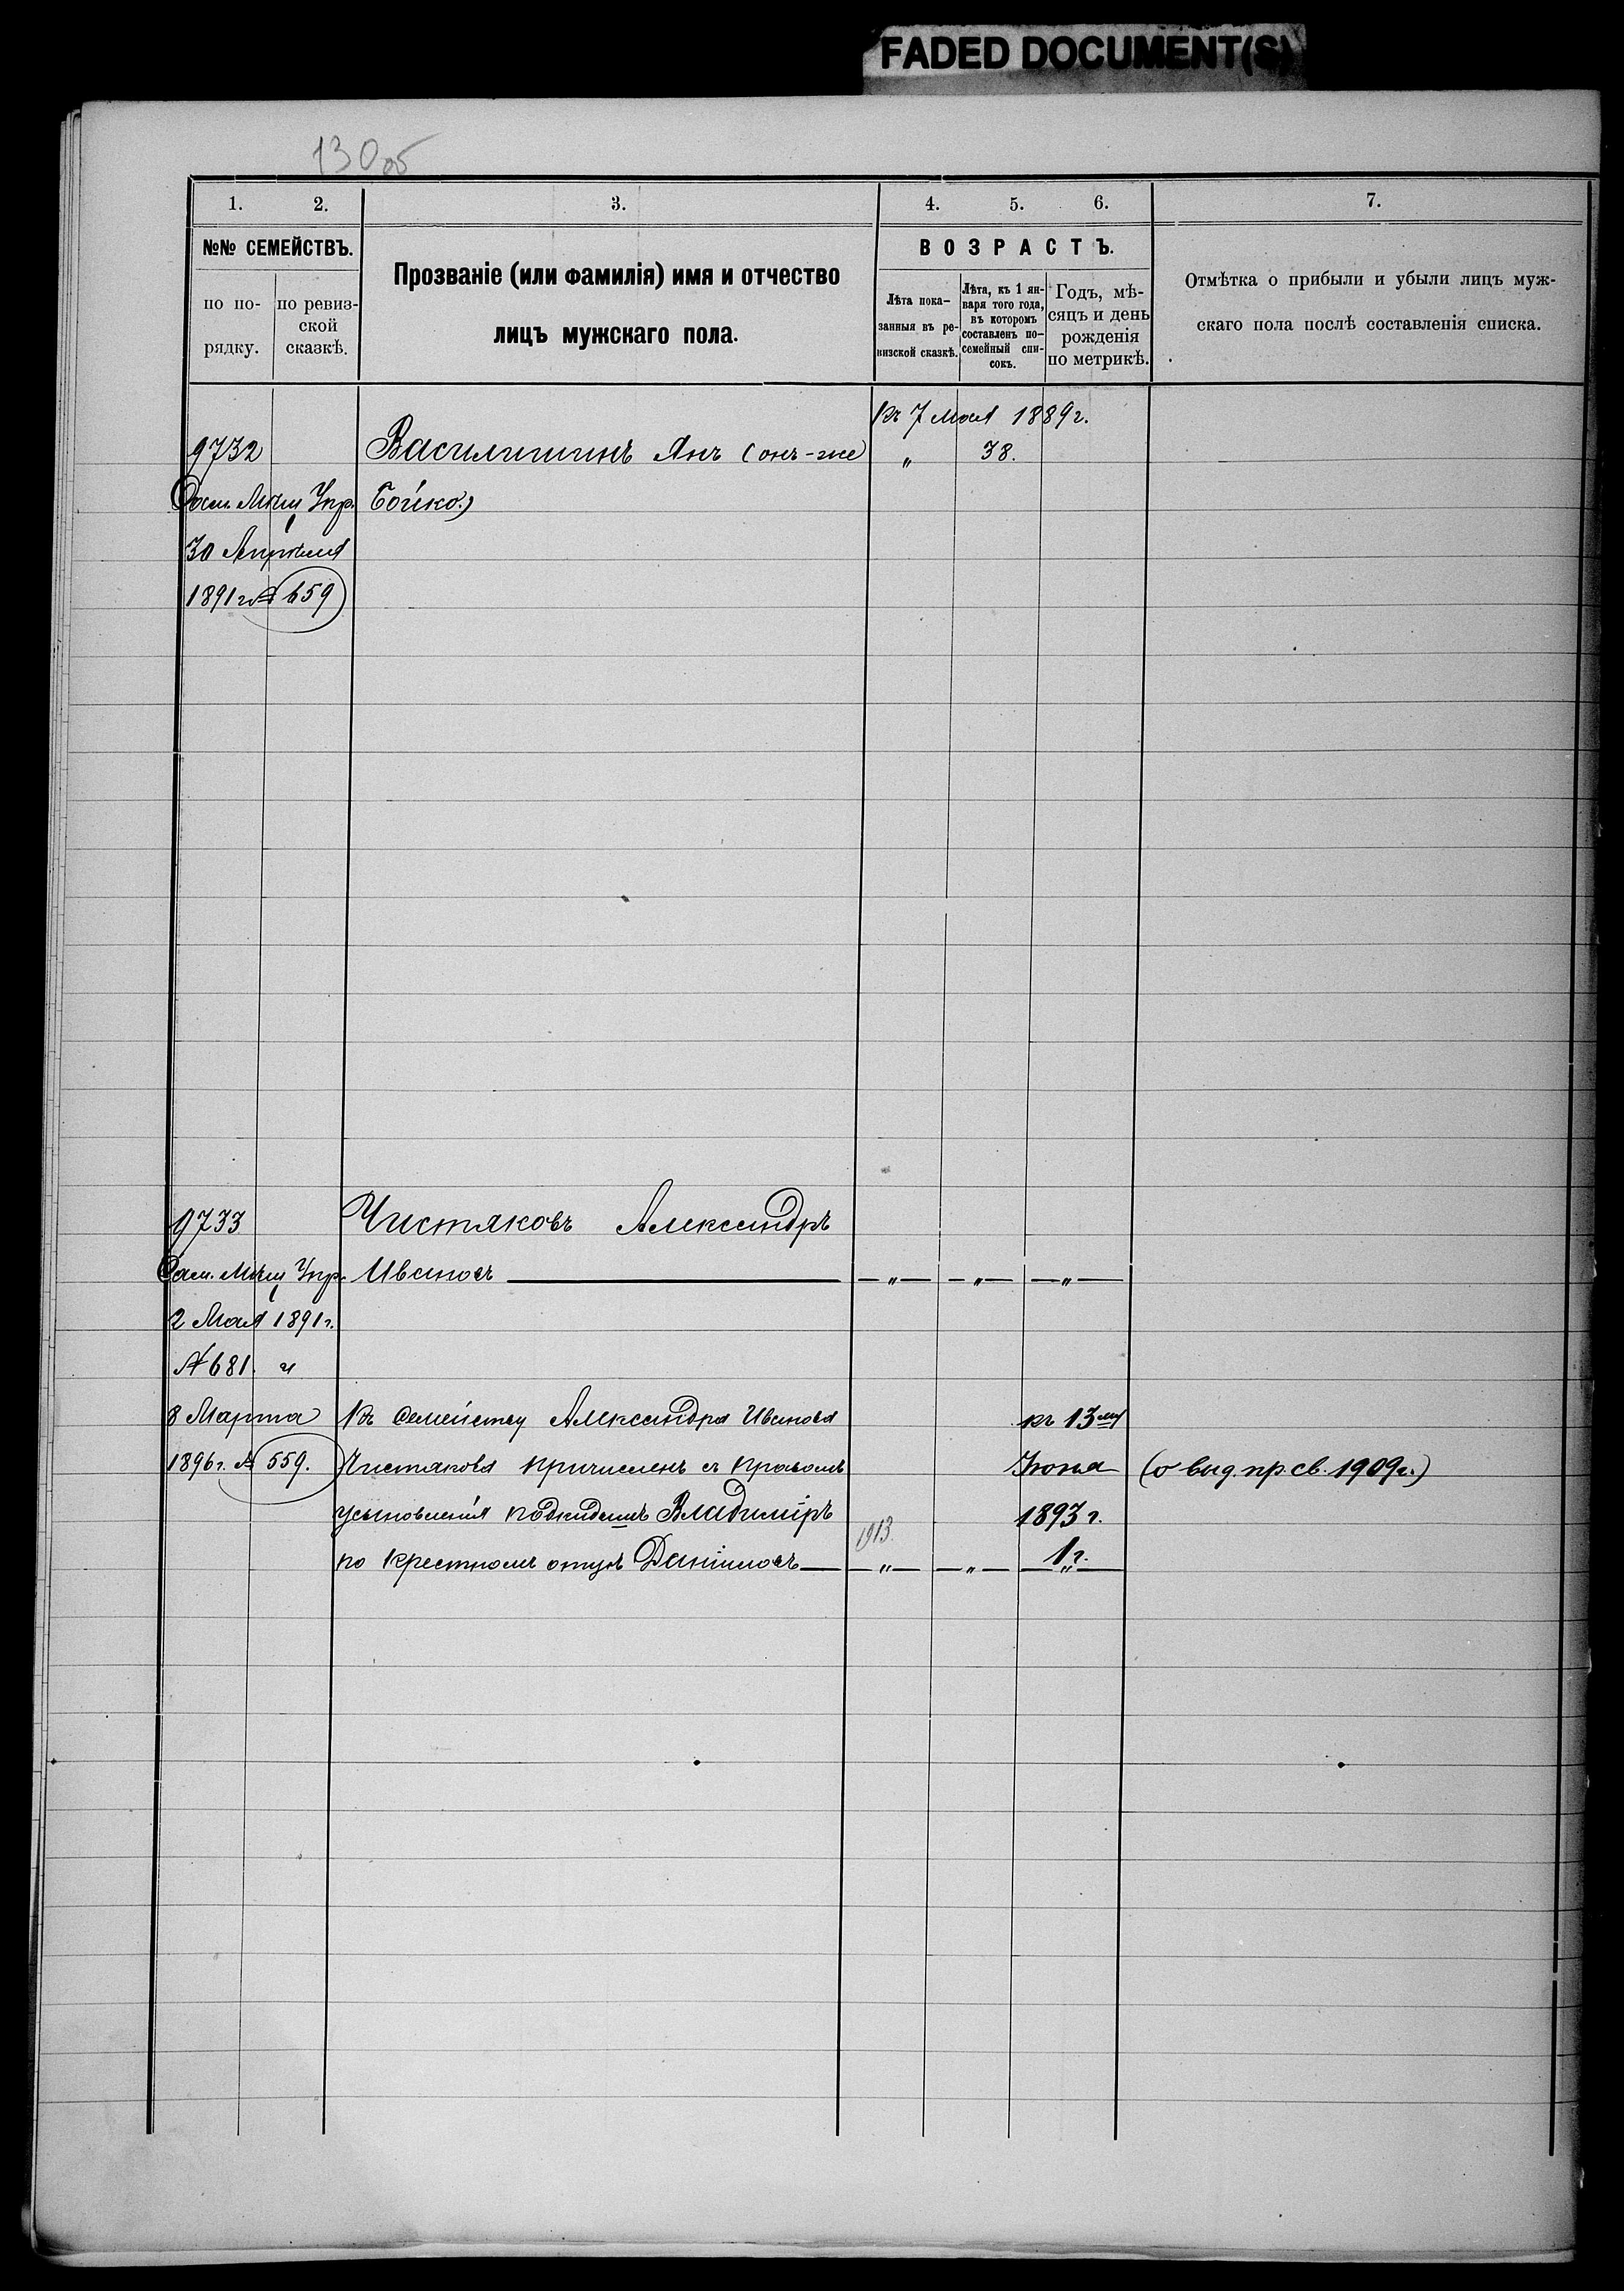 FADED DOCUMENT(S)
130 об
1. 2. 3. 4. 5. 6. 7.
№№ СЕМЕЙСТВЪ.
по по-
рядку.
по ревиз-
ской
сказкѣ.
Прозваніе (или фамилія) имя и отчество
лицъ мужскаго пола.
ВОЗРАСТЪ.
Лѣта пока-
занныя въ ре-
визской сказкѣ.
Лѣта, къ 1 ян-
варя того года,
въ которомъ
составленъ по-
семейный спи-
сокъ.
Годъ, мѣ-
сяцъ и день
рожденія
по метрикѣ.
Отмѣтка о прибыли и убыли лицъ муж-
скаго пола послѣ составленія списка.
къ 7 мая 1889 г.
9732 Василишинъ Янъ (онъ-же „ 38.
Мѣщ Упр. Бойко)
30 Апрѣля
1891 г. № 659
9733 Чистяковъ Александръ
Мѣщ Упр. Ивановъ — „ — — „ — — „ —
2 Мая 1891 г.
№ 681. и
8 Марта Къ семейству Александра Иванова къ 13му
1896 г. № 559. Чистякова причисленъ съ правомъ Іюня (о выд. пр. св. 1909 г.)
усыновленія подкидышъ Владиміръ 1893 г.
по крестномъ отцѣ Даніиловъ — 1913. „ — — „ — 1 г. „